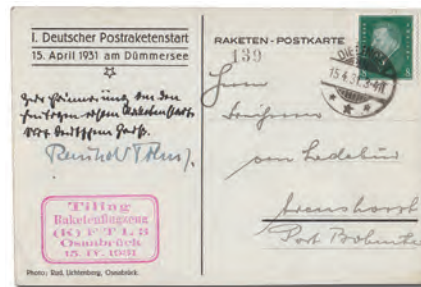 I. Deutscher Postraketenstart
15. April 1931 am Dümmersee
Zur Erinnerung an den
Reinhold Tiling.
Tiling
Raketenflugzeug
(K) F T L 3
Osnabrück
15. IV. 1931
Photo: Rud. Lichtenberg, Osnabrück.
RAKETEN-POSTKARTE
139
15.4.31. 3-4N
Herrn
Freiherrn
von Ledebur
Arenshorst
Post Bohmte